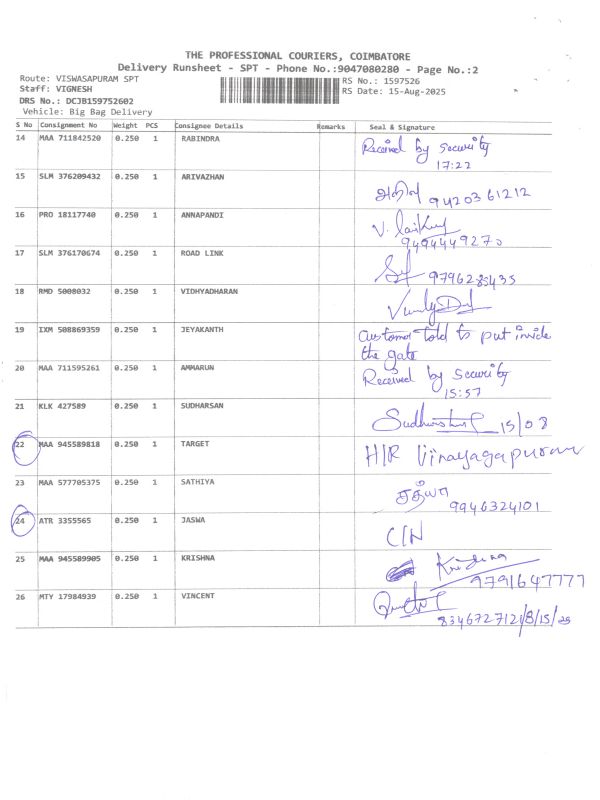 THE PROFESSIONAL COURIERS, COIMBATORE
Delivery Runsheet - SPT - Phone No.:9047080280 - Page No.:2
Route: VISWASAPURAM SPT
RS No.: 1597526
Staff: VIGNESH
RS Date: 15-Aug-2025
DRS No.: DCJB159752602
Vehicle: Big Bag Delivery
S No Consignment No Weight PCS Consignee Details Remarks Seal & Signature
14 MAA 711842520 0.250 1 RABINDRA Received by security
17:22
15 SLM 376209432 0.250 1 ARIVAZHAN
9420361212
16 PRO 18117740 0.250 1 ANNAPANDI
9494449270
17 SLM 376170674 0.250 1 ROAD LINK
9796285435
18 RMD 5008032 0.250 1 VIDHYADHARAN
19 IXM 508869359 1 JEYAKANTH customer told to put inside
0.250
the gate
20 MAA 711595261 0.250 1 AMMARUN Received by Security
15:57
21 KLK 427589 0.250 1 SUDHARSAN
15/08
22 MAA 945589818 0.250 1 TARGET H/R Vinayagapuram
23 MAA 577705375 0.250 1 SATHIYA சத்யா
9946324101
24 ATR 3355565 0.250 1 JASWA C/N
25 MAA 945589905 0.250 1 KRISHNA Krishna
9791647777
26 MTY 17984939 0.250 1 VINCENT
8346727121/8/15/25